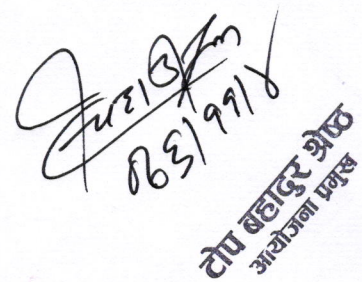 ०६३/११/४
टोप बहादुर श्रेष्ठ
आयोजना प्रमुख